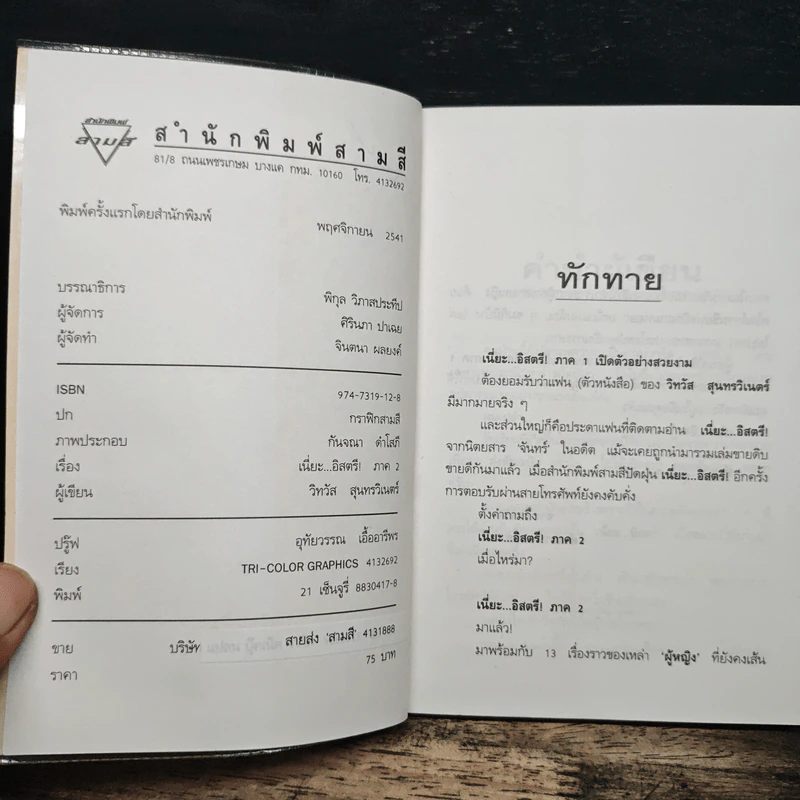 สำนักพิมพ์
สามสี
สำนักพิมพ์สามสี
81/8 ถนนเพชรเกษม บางแค กทม. 10160 โทร. 4132692
พิมพ์ครั้งแรกโดยสำนักพิมพ์
พฤศจิกายน 2541
บรรณาธิการ พิกุล วิภาสประทีป
ผู้จัดการ ศิรินภา ปาเฉย
ผู้จัดทำ จินตนา ผลยงค์
ISBN 974-7319-12-8
ปก กราฟิกสามสี
ภาพประกอบ กันจณา ดำโสภี
เรื่อง เนี่ยะ...อิสตรี! ภาค 2
ผู้เขียน วิทวัส สุนทรวิเนตร์
ปรู๊ฟ อุทัยวรรณ เอื้ออารีพร
เรียง TRI-COLOR GRAPHICS 4132692
พิมพ์ 21 เซ็นจูรี่ 8830417-8
ขาย บริษัท สายส่ง 'สามสี' 4131888
ราคา 75 บาท
ทักทาย
เนี่ยะ...อิสตรี! ภาค 1 เปิดตัวอย่างสวยงาม
ต้องยอมรับว่าแฟน (ตัวหนังสือ) ของ วิทวัส สุนทรวิเนตร์
มีมากมายจริง ๆ
และส่วนใหญ่ก็คือประดาแฟนที่ติดตามอ่าน เนี่ยะ...อิสตรี!
จากนิตยสาร 'จันทร์' ในอดีต แม้จะเคยถูกนำมารวมเล่มขายดิบ
ขายดีกันมาแล้ว เมื่อสำนักพิมพ์สามสีปัดฝุ่น เนี่ยะ...อิสตรี! อีกครั้ง
การตอบรับผ่านสายโทรศัพท์ยังคงคับคั่ง
ตั้งคำถามถึง
เนี่ยะ...อิสตรี! ภาค 2
เมื่อไหร่มา?
เนี่ยะ...อิสตรี! ภาค 2
มาแล้ว!
มาพร้อมกับ 13 เรื่องราวของเหล่า 'ผู้หญิง' ที่ยังคงเส้น